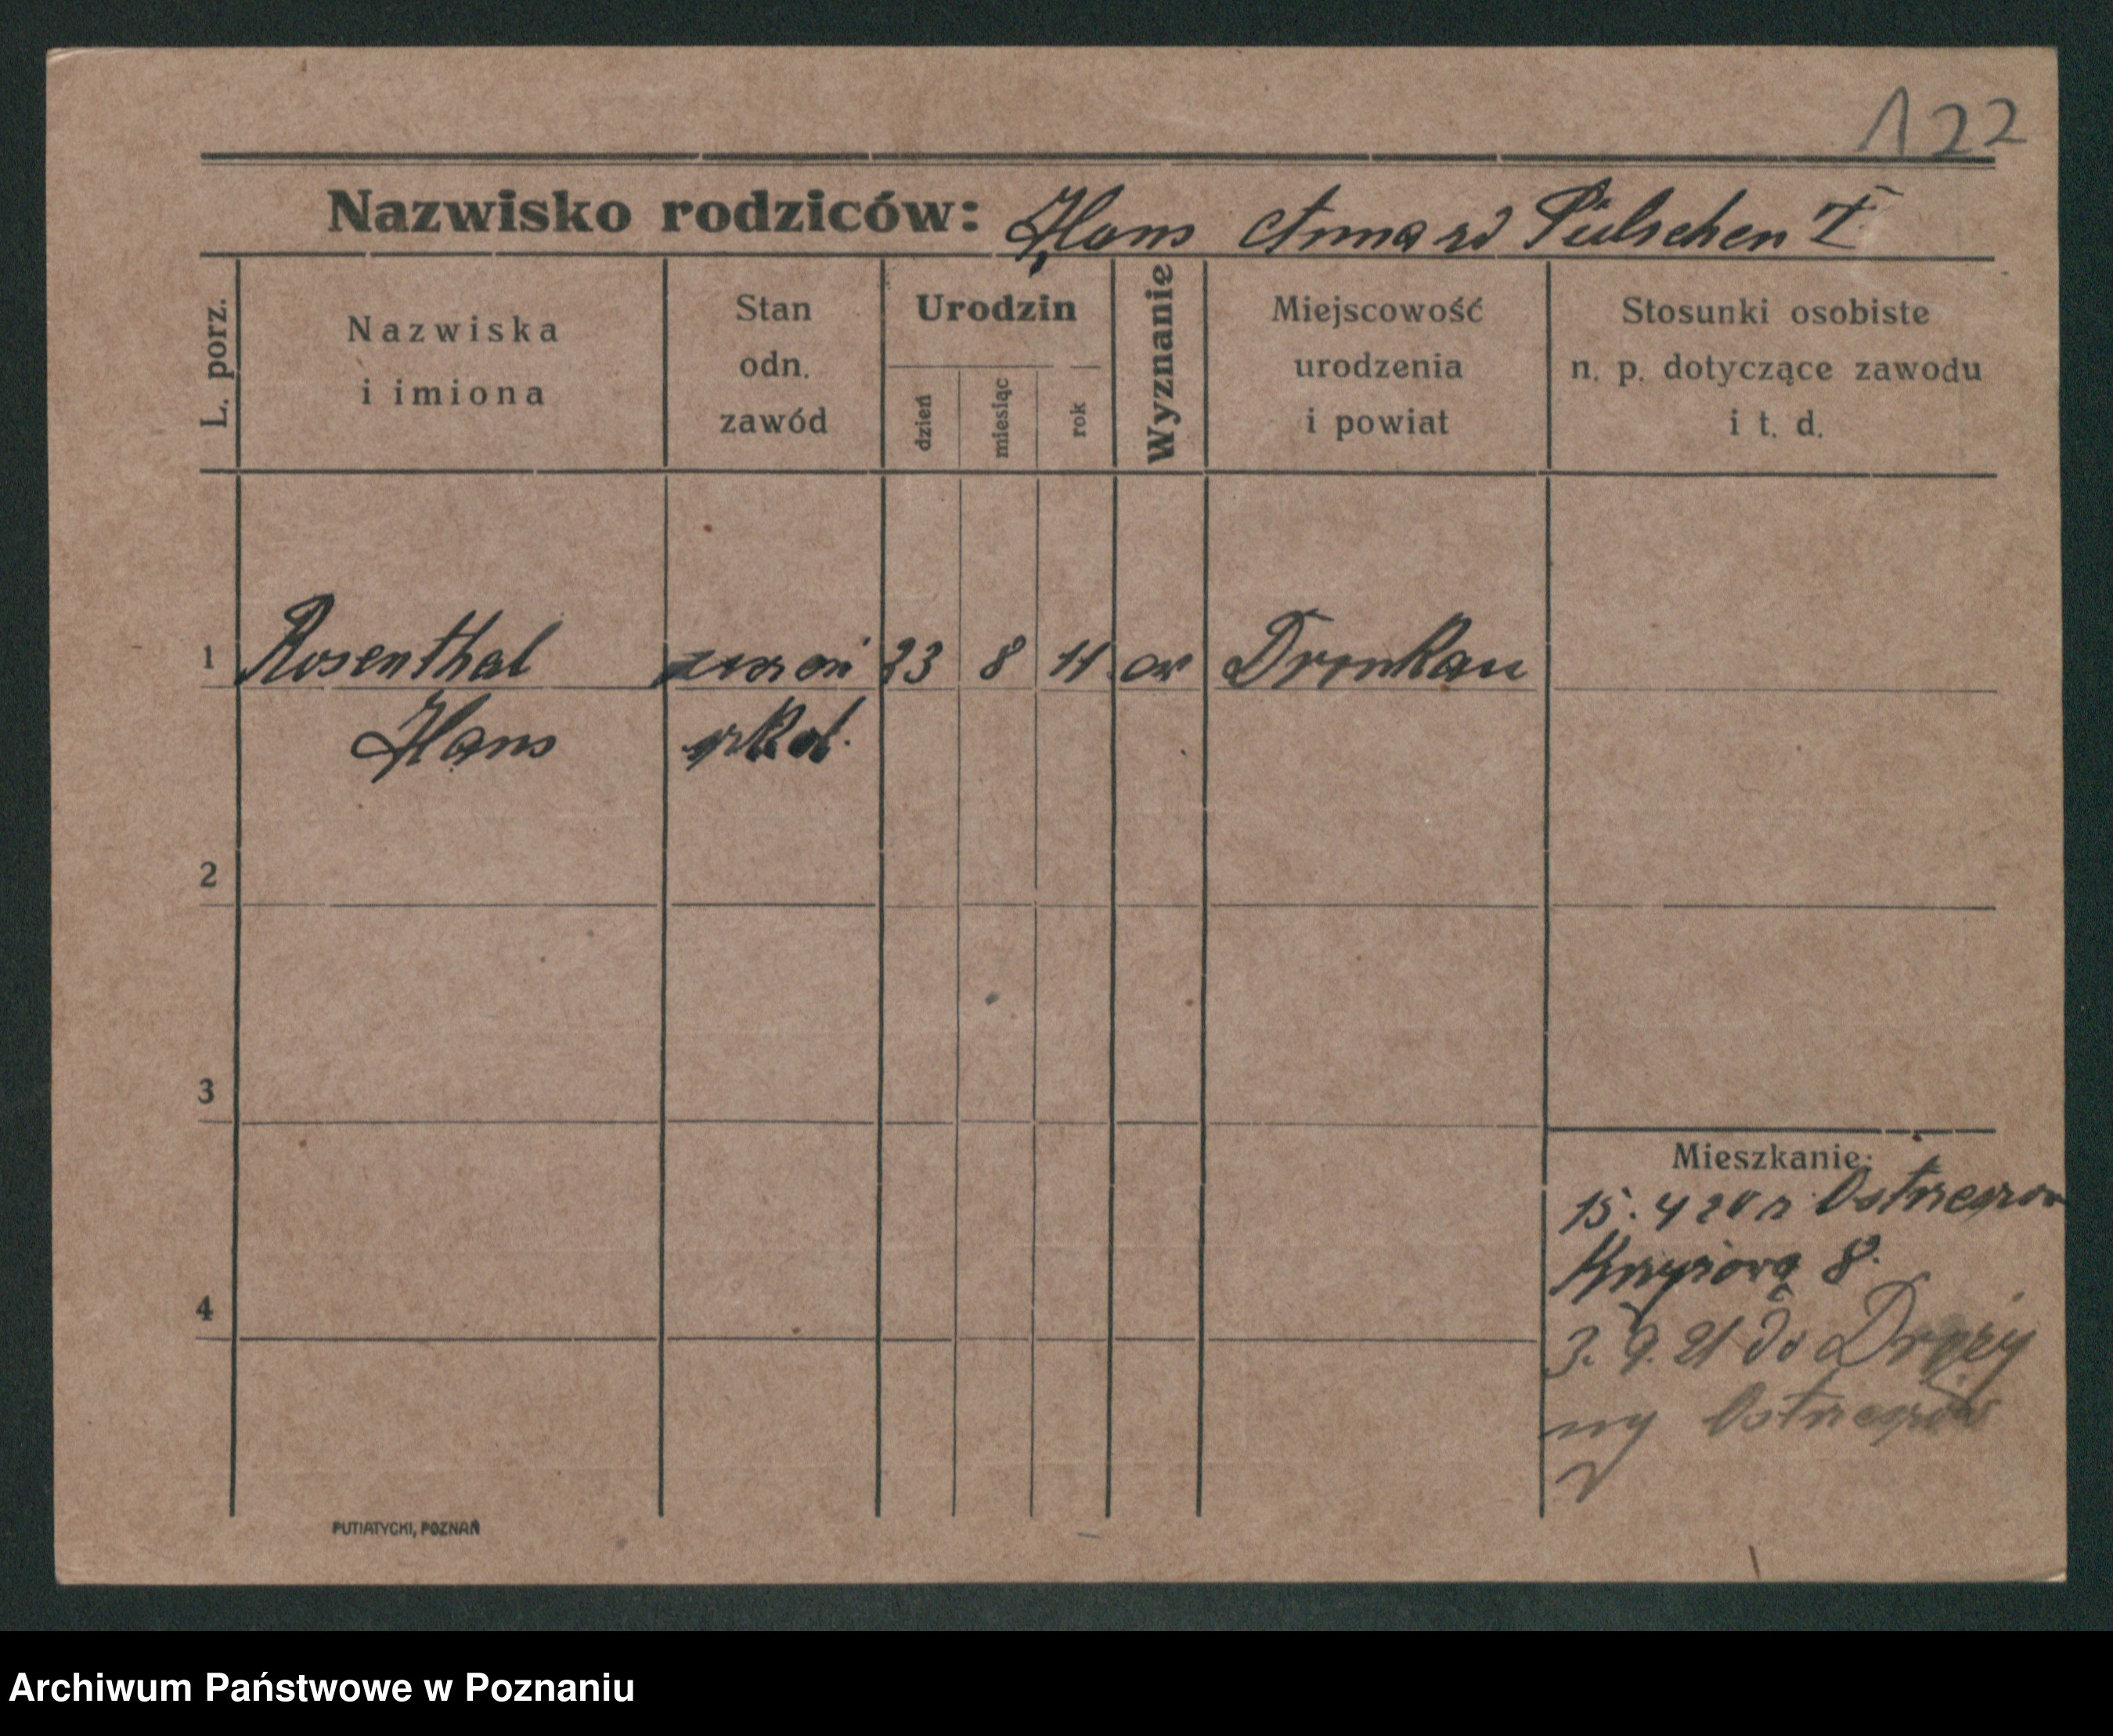 122
Nazwisko rodziców: Hans Anna zd Pülschen I
L. porz.
Nazwiska
i imiona
Stan
odn.
zawód
Urodzin
dzień
miesiąc
rok
Wyznanie
Miejscowość
urodzenia
i powiat
Stosunki osobiste
n. p. dotyczące zawodu
i t. d.
1 Rosenthal uczeń 23 8 11 ew
Hans szkol.
2
3
4
Mieszkanie:
15. 4 20 z Ostrzeszow
8.
3. 9. 21 do
Ostrzeszów
PUTIATYCKI, POZNAŃ
Archiwum Państwowe w Poznaniu